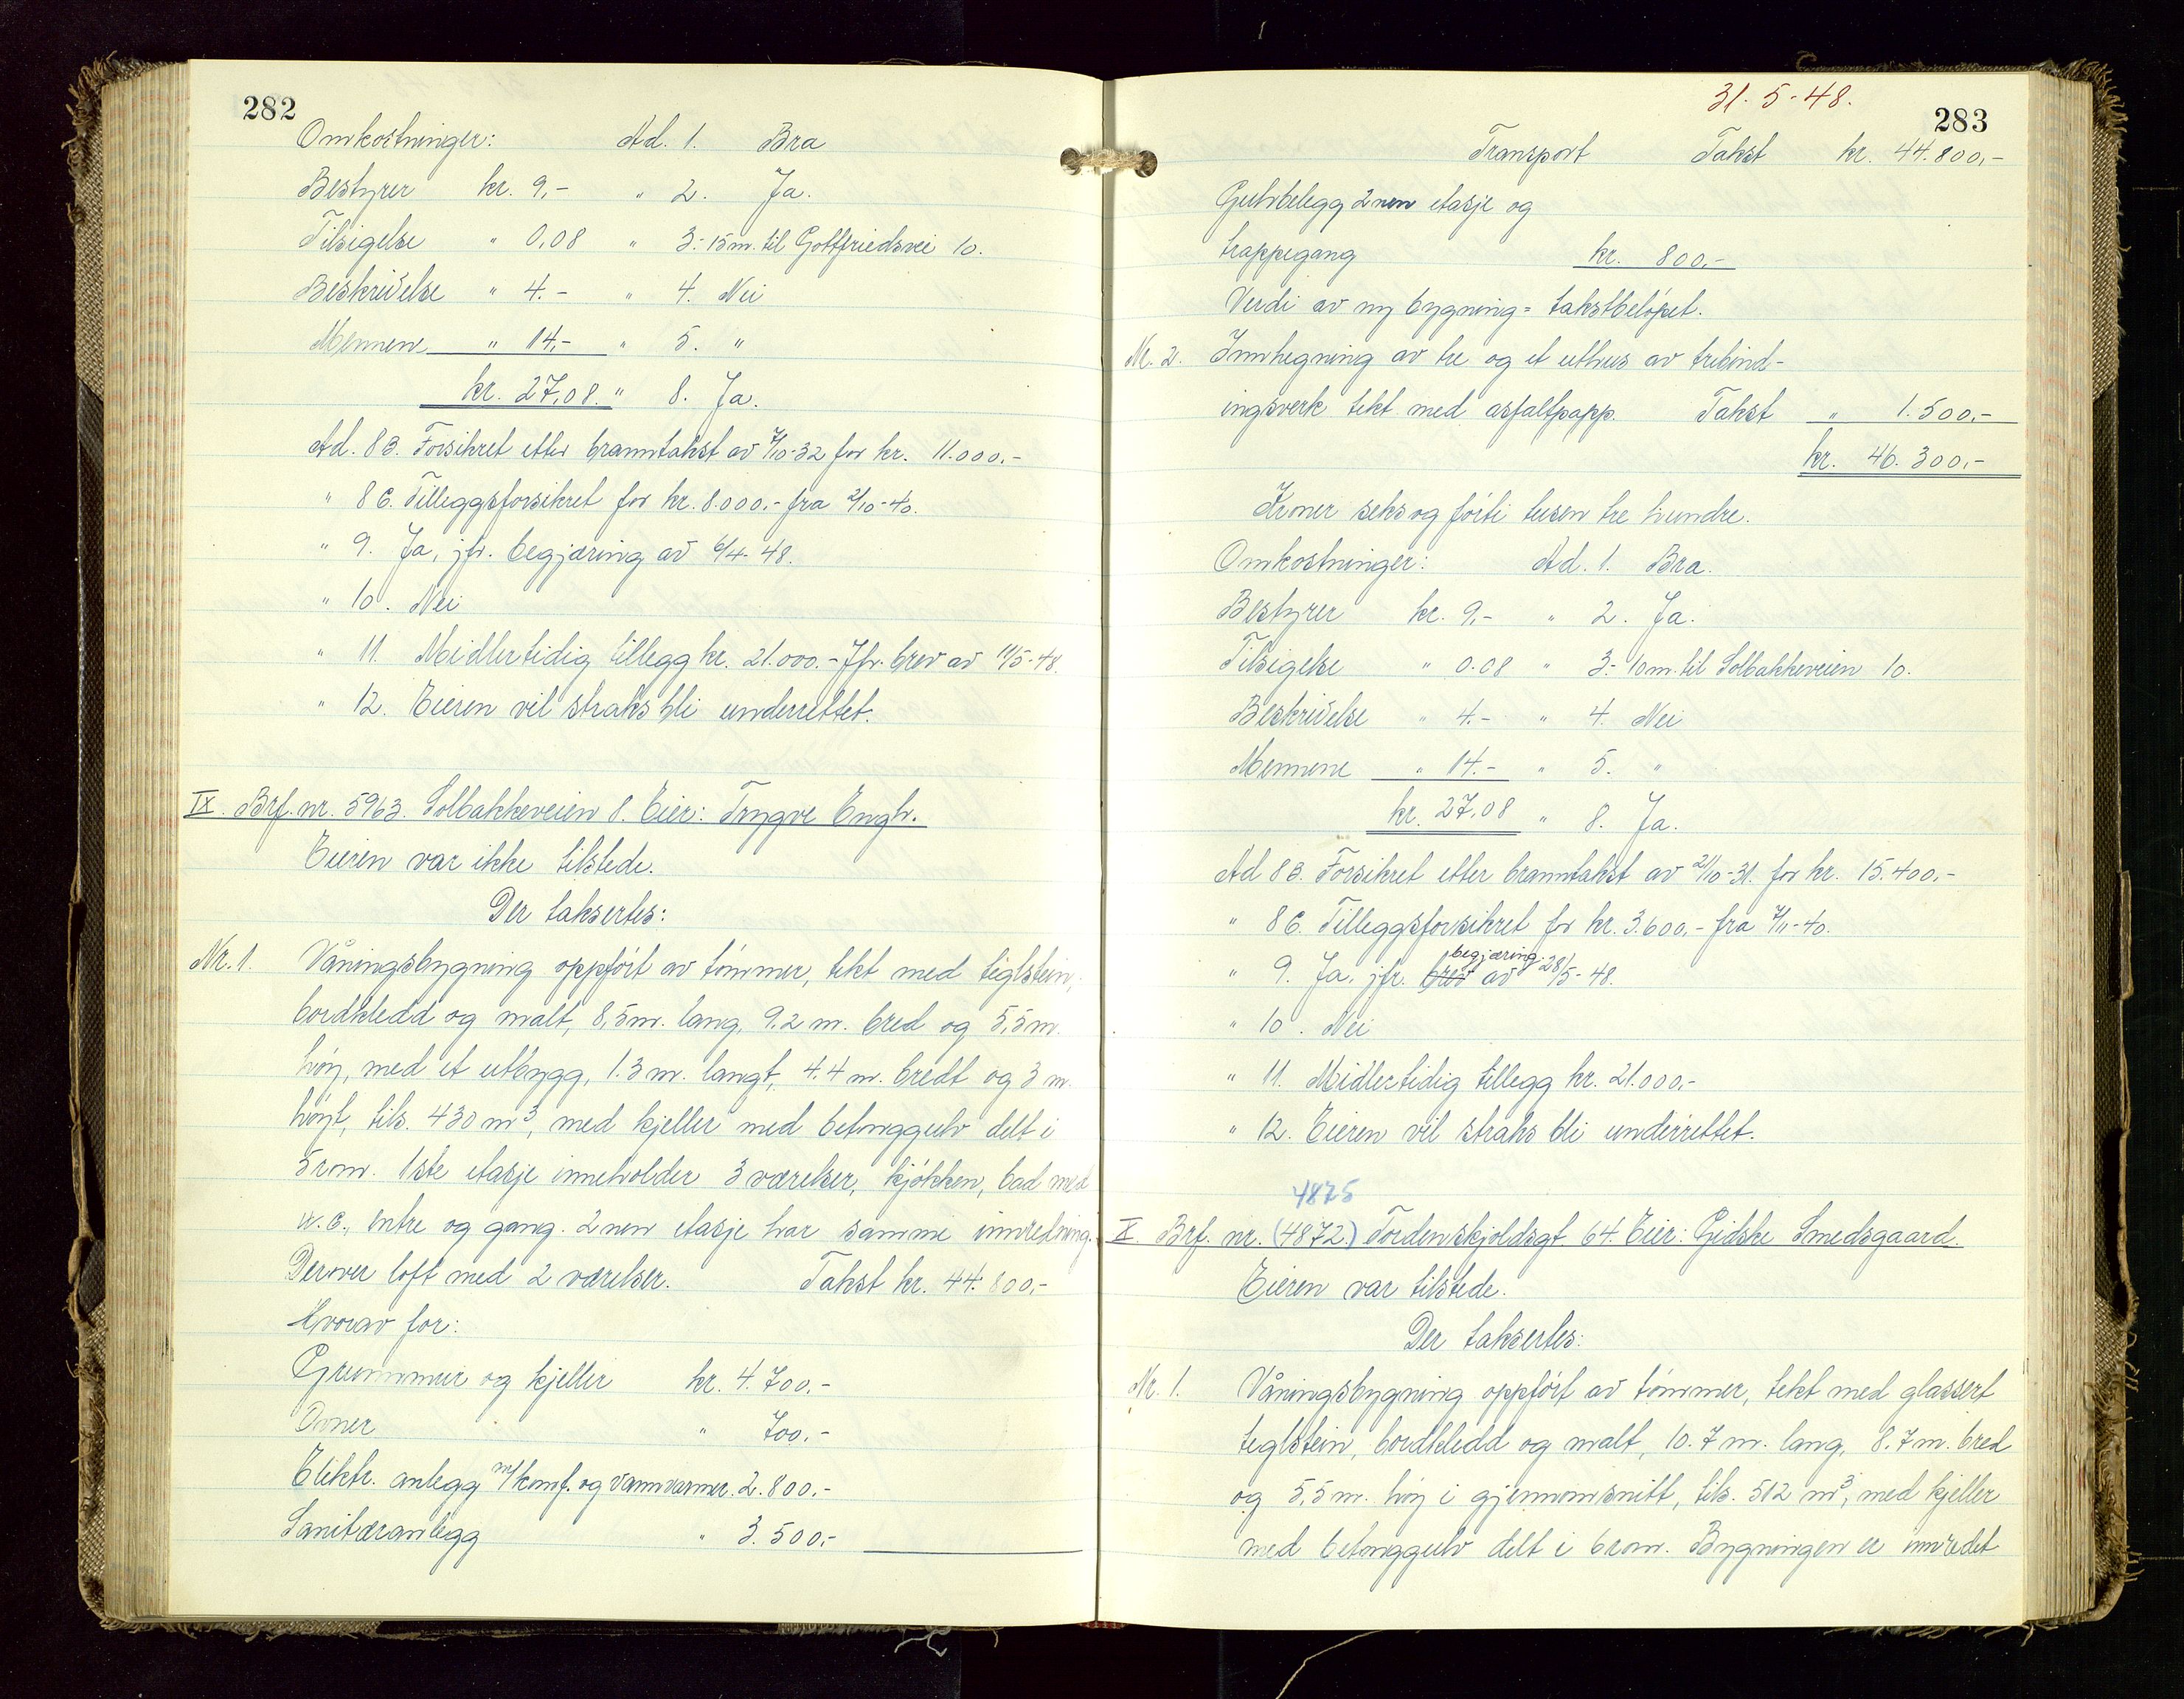 282
Omkostninger: Ad. 1. Bra
Bestyrer kr. 9,- " 2. Ja.
Tilsigelse " 0,08 " 3.- 15 m. til Gottfriedsvei 10.
Beskrivelse " 4.- " 4. Nei
Mennene " 14,- " 5. "
kr. 27,08. " 8. Ja.
Ad. 8B. Forsikret etter branntakst av 7/10-32 for kr. 11.000,-
" 8C. Tilleggsforsikret for kr. 8.000.- fra 2/10-40.
" 9. Ja, jfr. begjæring av 6/4-48.
" 10. Nei
" 11. Midlertidig tillegg kr. 21.000.- Jfr. brev av 11/5-48.
" 12. Eieren vil straks bli underrettet.
IX. Brf. nr. 5963. Solbakkeveien 8. Eier: Trygve Engh.
Eieren var ikke tilstede.
Der taksertes:
Nr. 1. Våningsbygning oppført av tømmer, tekt med teglstein,
bordkledd og malt, 8,5 m. lang, 9.2 m. bred og 5,5 m.
høy, med et utbygg, 1.3 m. langt, 4.4 m. bredt og 3 m.
høyt, tils. 430 m³, med kjeller med betonggulv delt i
5 rom. 1ste etasje inneholder 3 værelser, kjøkken, bad med
w.c., entre og gang. 2nen etasje har samme innredning.
Derover loft med 2 værelser. Takst kr. 44.800,-
Hvorav for:
Grunnmur og kjeller kr. 4.700.-
Ovner " 700.-
Elektr. anlegg m/komf. og vannvarmer. 2.800.-
Sanitæranlegg " 3.500,-
31. 5-48.
283
Transport Takst kr. 44.800,-
Gulvbelegg 2nen etasje og
trappegang kr. 800,-
Verdi av ny bygning = takstbeløpet.
Nr. 2. Innhegning av tre og et uthus av trebind-
ingsverk tekt med asfaltpapp. Takst " 1.500,-
kr. 46.300,-
Kroner seks og førti tusen tre hundre.
Omkostninger: Ad. 1. Bra.
Bestyrer kr. 9,- " 2. Ja.
Tilsigelse " 0.08 " 3.- 10 m. til Solbakkeveien 10.
Beskrivelse " 4.- " 4. Nei
Mennene " 14.- " 5. "
kr. 27,08 " 8. Ja.
Ad 8B. Forsikret etter branntakst av 21/10-31. for kr. 15.400,-
" 8C. Tilleggsforsikret for kr. 3.600,- fra 7/11-40.
begjæring
" 9. Ja, jfr. brev av 28/5-48.
" 10. Nei
" 11. Midlertidig tillegg kr. 21.000,-
" 12. Eieren vil straks bli underrettet.
4875
X. Brf. nr. (4872) Tordenskjoldsgt 64. Eier: Gidske Smedsgaard.
Eieren var tilstede.
Der taksertes:
Nr. 1. Våningsbygning oppført av tømmer, tekt med glassert
teglstein, bordkledd og malt, 10.7 m. lang, 8.7 m. bred
og 5,5 m. høy i gjennomsnitt, tils. 512 m³, med kjeller
med betonggulv delt i 6 rom. Bygningen er innredet